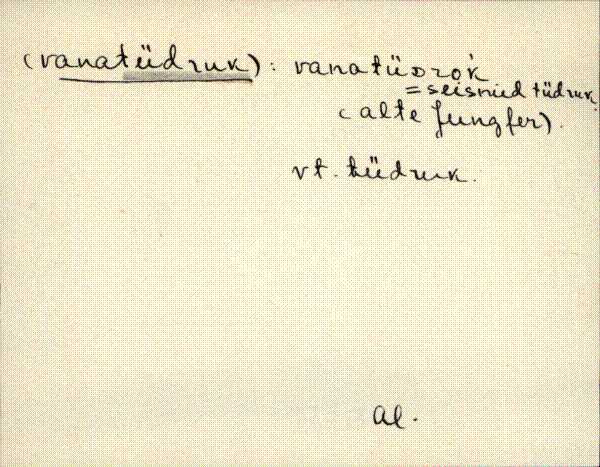 (vanatüdruk): vanatüDrok
= seisnud tüdruk
(alte Jungfer).
vt. tüdruk.
Al.